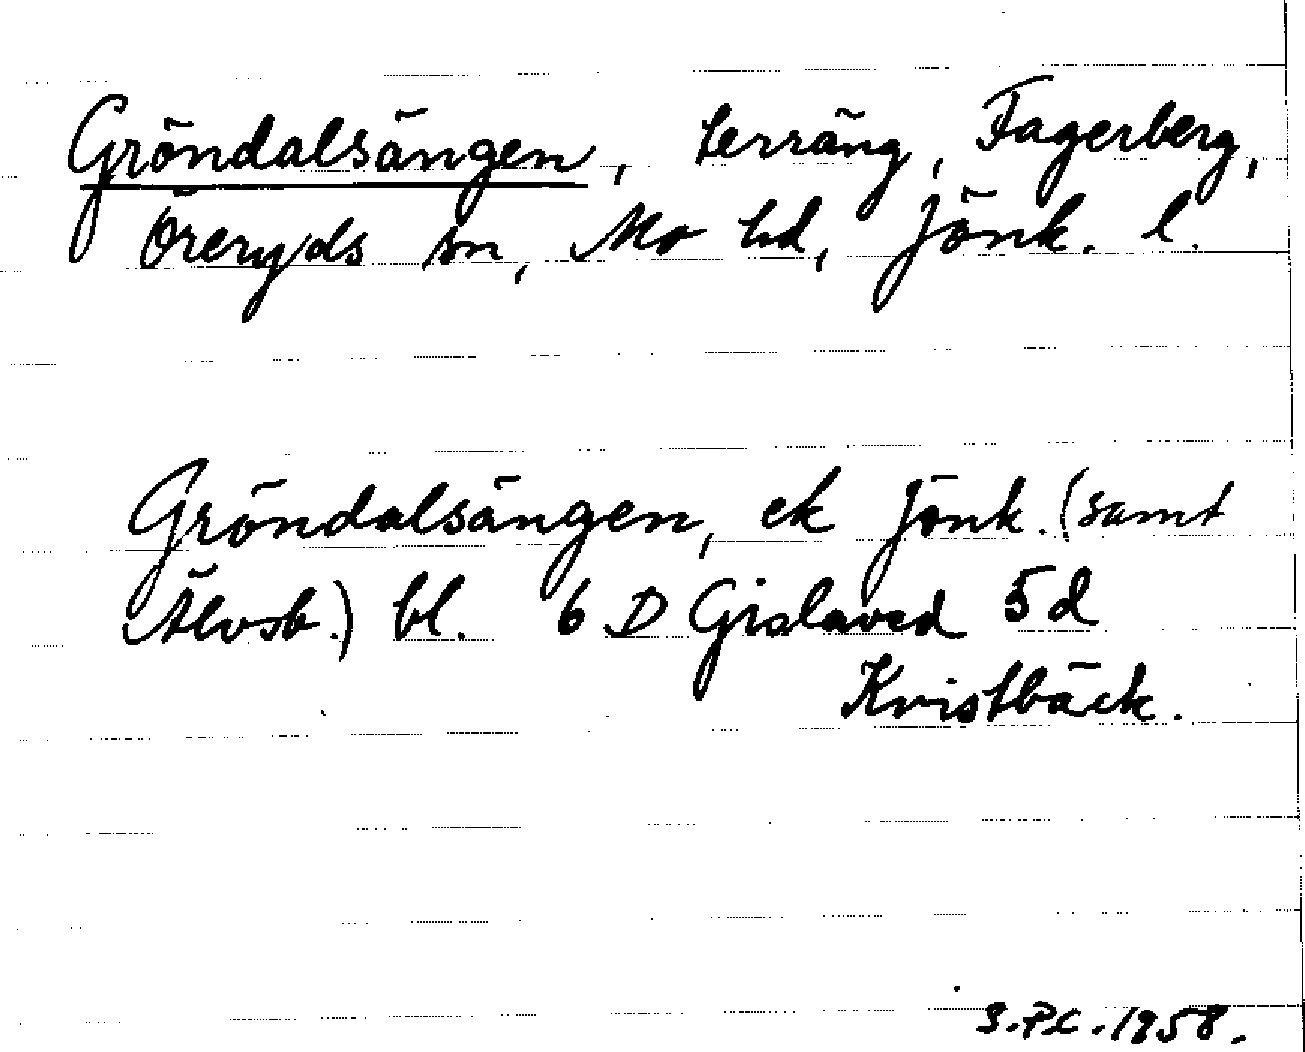 Gröndalsängen, terräng, Fagerberg,
Öreryds sn, Mo hd, Jönk. l.
Gröndalsängen, ek Jönk. (samt
Älvsb.) bl. 6 D Gislaved 5d
Kvistbäck.
S.P.C. 1958.